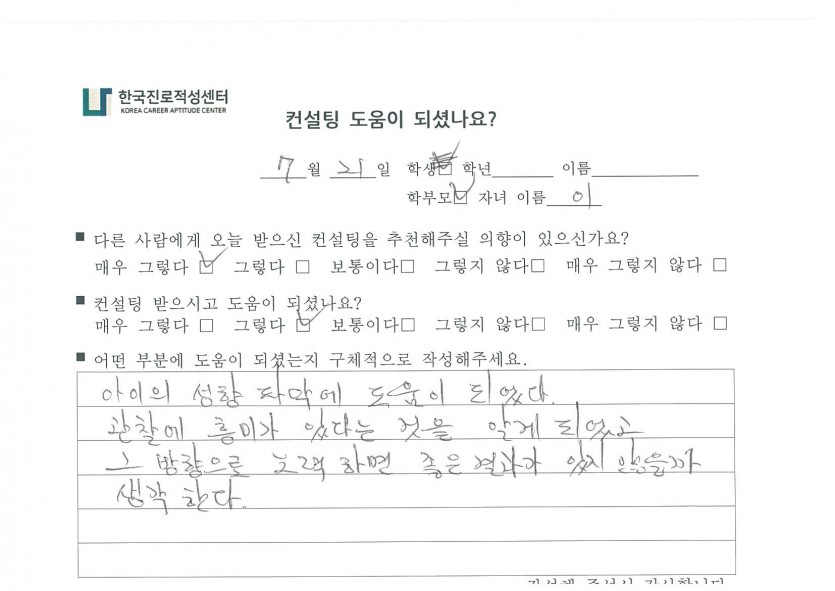 한국진로적성센터
KOREA CAREER APTITUDE CENTER
컨설팅 도움이 되셨나요?
7월 21일 학생☐ 학년 이름
학부모☑ 자녀 이름 이
■ 다른 사람에게 오늘 받으신 컨설팅을 추천해주실 의향이 있으신가요?
매우 그렇다 ☑ 그렇다 ☐ 보통이다☐ 그렇지 않다☐ 매우 그렇지 않다 ☐
■ 컨설팅 받으시고 도움이 되셨나요?
매우 그렇다 ☐ 그렇다 ☑ 보통이다☐ 그렇지 않다☐ 매우 그렇지 않다 ☐
■ 어떤 부분에 도움이 되셨는지 구체적으로 작성해주세요.
아이의 성향 파악에 도움이 되었다.
관찰에 흥미가 있다는 것을 알게 되었고
그 방향으로 노력 하면 좋은 결과가 있지 않을까
생각 한다.